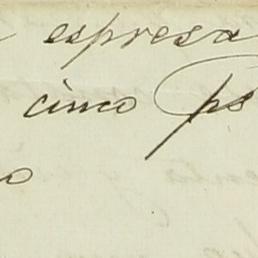 espresa
cinco ps